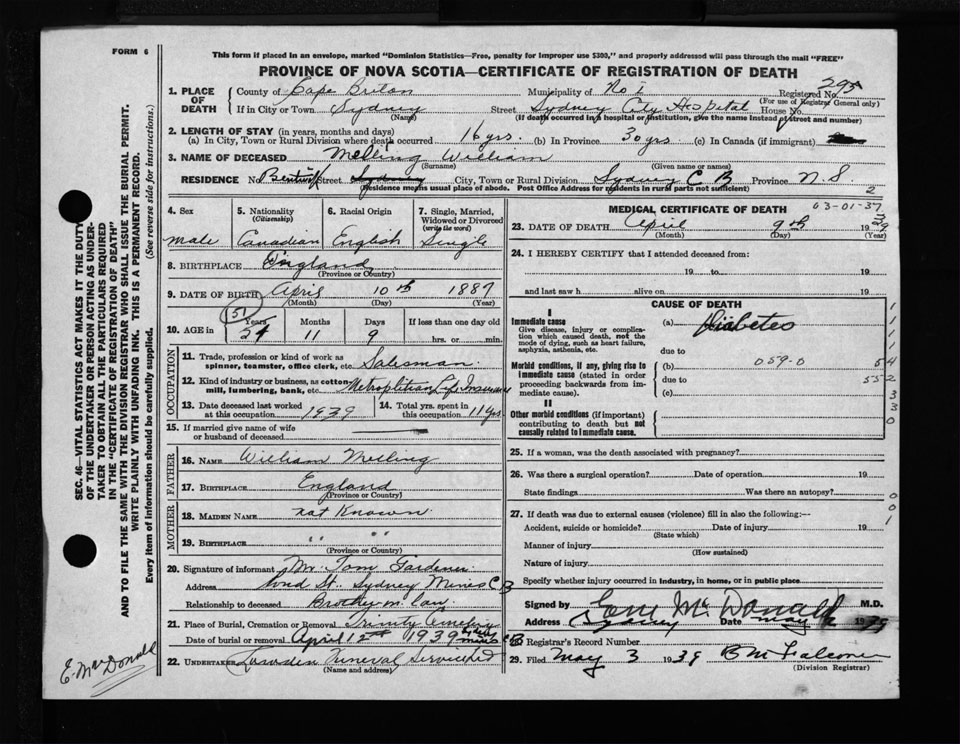 FORM 6
This form if placed in an envelope, marked "Dominion Statistics—Free, penalty for Improper use $300," and properly addressed will pass through the mail "FREE"
PROVINCE OF NOVA SCOTIA—CERTIFICATE OF REGISTRATION OF DEATH
1. PLACE OF DEATH
County of Cape Breton Municipality of No 1 Registered No. 295
(For use of Registrar General only)
If in City or Town Sydney Street Sydney City Hospital House No.
(Name) (If death occurred in a hospital or institution, give the name instead of street and number)
2. LENGTH OF STAY (in years, months and days)
(a) In City, Town or Rural Division where death occurred 16 yrs. (b) In Province 30 yrs (c) In Canada (if immigrant)
3. NAME OF DECEASED Melling William
(Surname) (Given name or names)
RESIDENCE No. Street Sydney City, Town or Rural Division Sydney C B Province N. S.
(Residence means usual place of abode. Post Office Address for residents in rural parts not sufficient)
2
4. Sex
male
5. Nationality
(Citizenship)
Canadian
6. Racial Origin
English
7. Single, Married, Widowed or Divorced
(write the word)
Single
8. BIRTHPLACE England
(Province or Country)
9. DATE OF BIRTH April 10th 1887
(Month) (Day) (Year)
10. AGE in
(51)
Years Months Days If less than one day old
11 9 hrs. or min.
OCCUPATION
11. Trade, profession or kind of work as spinner, teamster, office clerk, etc. Salesman
12. Kind of industry or business, as cotton mill, lumbering, bank, etc. Metroplitian Life Insurance
13. Date deceased last worked at this occupation 1939
14. Total yrs. spent in this occupation 11 yrs.
15. If married give name of wife or husband of deceased
FATHER
16. NAME William Melling
17. BIRTHPLACE England
(Province or Country)
MOTHER
18. MAIDEN NAME not Known
19. BIRTHPLACE " "
(Province or Country)
20. Signature of informant Mr. Tom Gardener
Address Pond St. Sydney Mines C B
Relationship to deceased Brother in law
21. Place of Burial, Cremation or Removal Trinity Cemetery
Date of burial or removal April 12th 1939 Sydney mines C B
22. UNDERTAKER Funeral Service Ltd
(Name and address)
MEDICAL CERTIFICATE OF DEATH
03-01-37
23. DATE OF DEATH April 9th 1939
(Month) (Day) (Year)
24. I HEREBY CERTIFY that I attended deceased from:
19 to 19
and last saw h alive on 19
CAUSE OF DEATH
I
Immediate cause
Give disease, injury or complication which caused death, not the mode of dying, such as heart failure, asphyxia, asthenia, etc.
(a) Diabetes
due to
Morbid conditions, if any, giving rise to immediate cause (stated in order proceeding backwards from immediate cause).
(b) 059-0
due to
(c)
II
Other morbid conditions (if important) contributing to death but not causally related to immediate cause.
1
1
1
1
54
552
3
3
0
25. If a woman, was the death associated with pregnancy?
26. Was there a surgical operation? Date of operation 19
State findings Was there an autopsy?
0
0
1
27. If death was due to external causes (violence) fill in also the following:—
Accident, suicide or homicide? Date of injury 19
(State which)
Manner of injury
(How sustained)
Nature of injury
Specify whether injury occurred in industry, in home, or in public place
Signed by McDonald M.D.
Address Sydney Date May 1939
28. Registrar's Record Number
29. Filed May 3 1939 B M Falconer
(Division Registrar)
SEC. 46—VITAL STATISTICS ACT MAKES IT THE DUTY OF THE UNDERTAKER OR PERSON ACTING AS UNDERTAKER TO OBTAIN ALL THE PARTICULARS REQUIRED IN THE "CERTIFICATE OF REGISTRATION OF DEATH"
AND TO FILE THE SAME WITH THE DIVISION REGISTRAR WHO SHALL ISSUE THE BURIAL PERMIT.
WRITE PLAINLY WITH UNFADING INK. THIS IS A PERMANENT RECORD.
Every item of information should be carefully supplied. (See reverse side for instructions.)
E. MacDonald